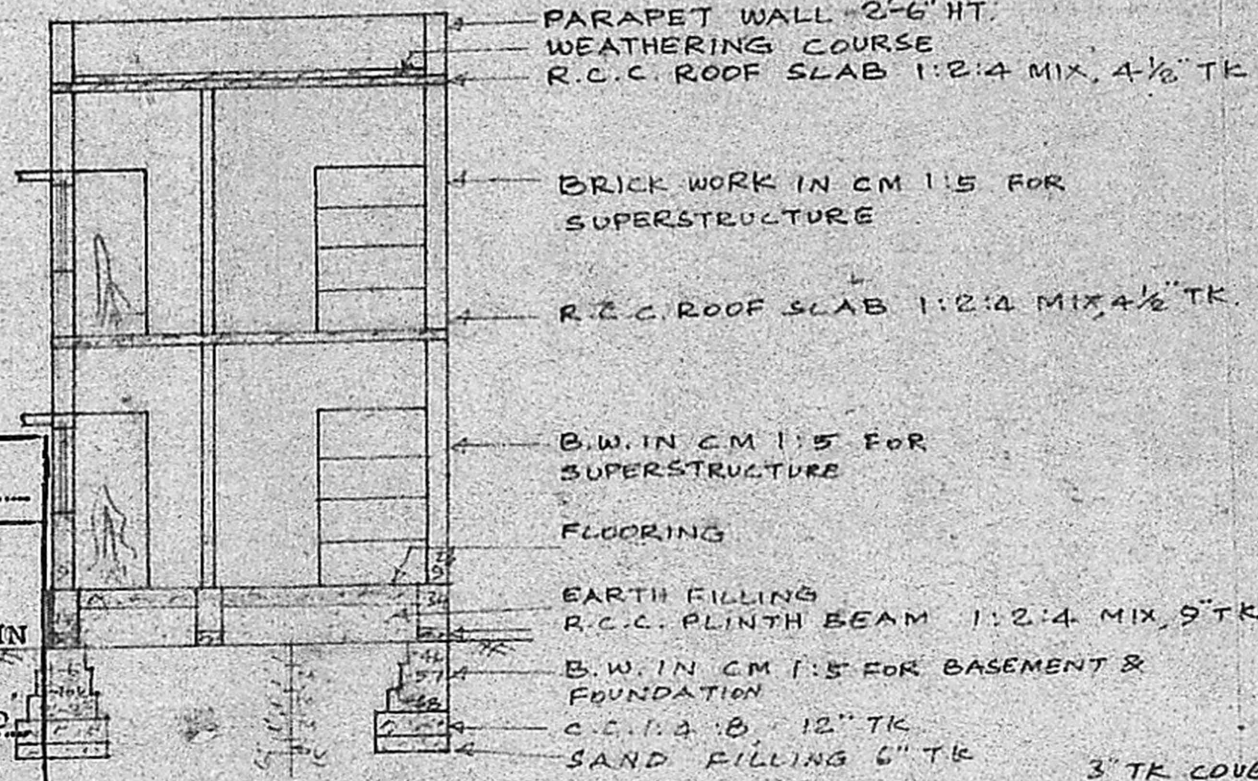 PARAPET WALL 2'-6" HT.
WEATHERING COURSE
R.C.C. ROOF SLAB 1:2:4 MIX, 4½" TK
BRICK WORK IN CM 1:5 FOR
SUPERSTRUCTURE
R.C.C. ROOF SLAB 1:2:4 MIX, 4½" TK.
B.W. IN CM 1:5 FOR
SUPERSTRUCTURE
FLOORING
EARTH FILLING
R.C.C. PLINTH BEAM 1:2:4 MIX, 9" TK
IN
B.W. IN CM 1:5 FOR BASEMENT &
FOUNDATION
C.C. 1:4:8 12" TK
SAND FILLING 6" TK
3" TK